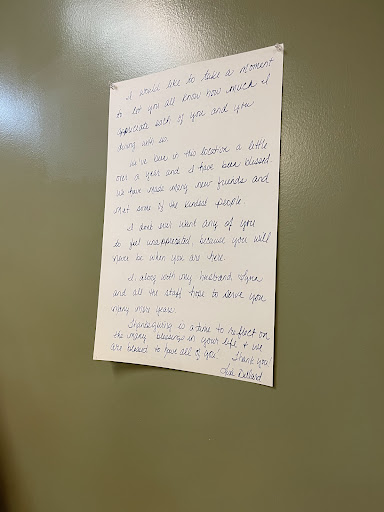 I would like to take a moment
to let you all know how much I
appreciate each of you and you
dining with us.
We've been in this location a little
over a year and I have been blessed.
We have made many new friends and
met some of the kindest people.
I dont ever want any of you
to feel unappreciated, because you will
never be when you are here.
I, along with my husband
and all the staff hope to serve you
many more years.
Thanksgiving is a time to reflect on
the many blessings in your life, & we
are blessed to have all of you! Thank you!